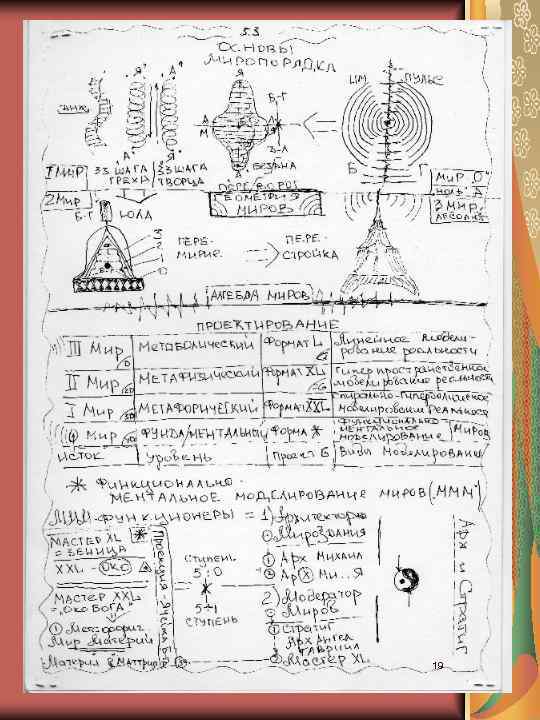 5.3
ОСНОВЫ
МИРОПОРЯДКА
"Я" "А" Я ЦМ ПУЛЬС
Б-Г
А
М
Б-А
"А" "Я" БЕЗДНА Б Г
I МИР 33 ШАГА 33 ШАГА
ГРЕХА ТВОРЦА
МИР
2 МИР
3 МИР
Б-Г ЮЛА
ГЕОМЕТРИЯ
МИРОВ
ПЕРЕ-
МИРИЕ
ПЕРЕ-
СТРОЙКА
АЛГЕБРА МИРОВ
ПРОЕКТИРОВАНИЕ
III Мир МЕТАБОЛИЧЕСКИЙ Формат L Линейное модели-
рование реальности
II Мир МЕТАФИЗИЧЕСКИЙ Формат XL Гиперпространственное
моделирование реальности
I Мир МЕТАФОРИЧЕСКИЙ Формат XXL
моделирование реальности
Мир ФУНДАМЕНТАЛЬНЫЙ Форма * ФУНКЦИОНАЛЬНО-
МЕНТАЛЬНОЕ
МОДЕЛИРОВАНИЕ МИРОВ
ИСТОК уровень Проект Б Виды моделирования
* ФУНКЦИОНАЛЬНО-
МЕНТАЛЬНОЕ МОДЕЛИРОВАНИЕ МИРОВ ("МММ")
МММ-ФУНКЦИОНЕРЫ = 1) Архитекторы
Мироздания
МАСТЕР XL *
= БЕННИЦА
XXL - ОКО
СТУПЕНЬ
5:0
① Арх МИХАИЛ
② Ар(Х) Ми...Я
МАСТЕР XXL
= "ОКО БОГА"
5÷1
СТУПЕНЬ
2) Модератор
Миров
① Метафориг.
Мир Материй
① СТРАТИГ
АРХАНГЕЛ
ГАВРИИЛ
② МАСТЕР XL
Арх и Стратиг
19